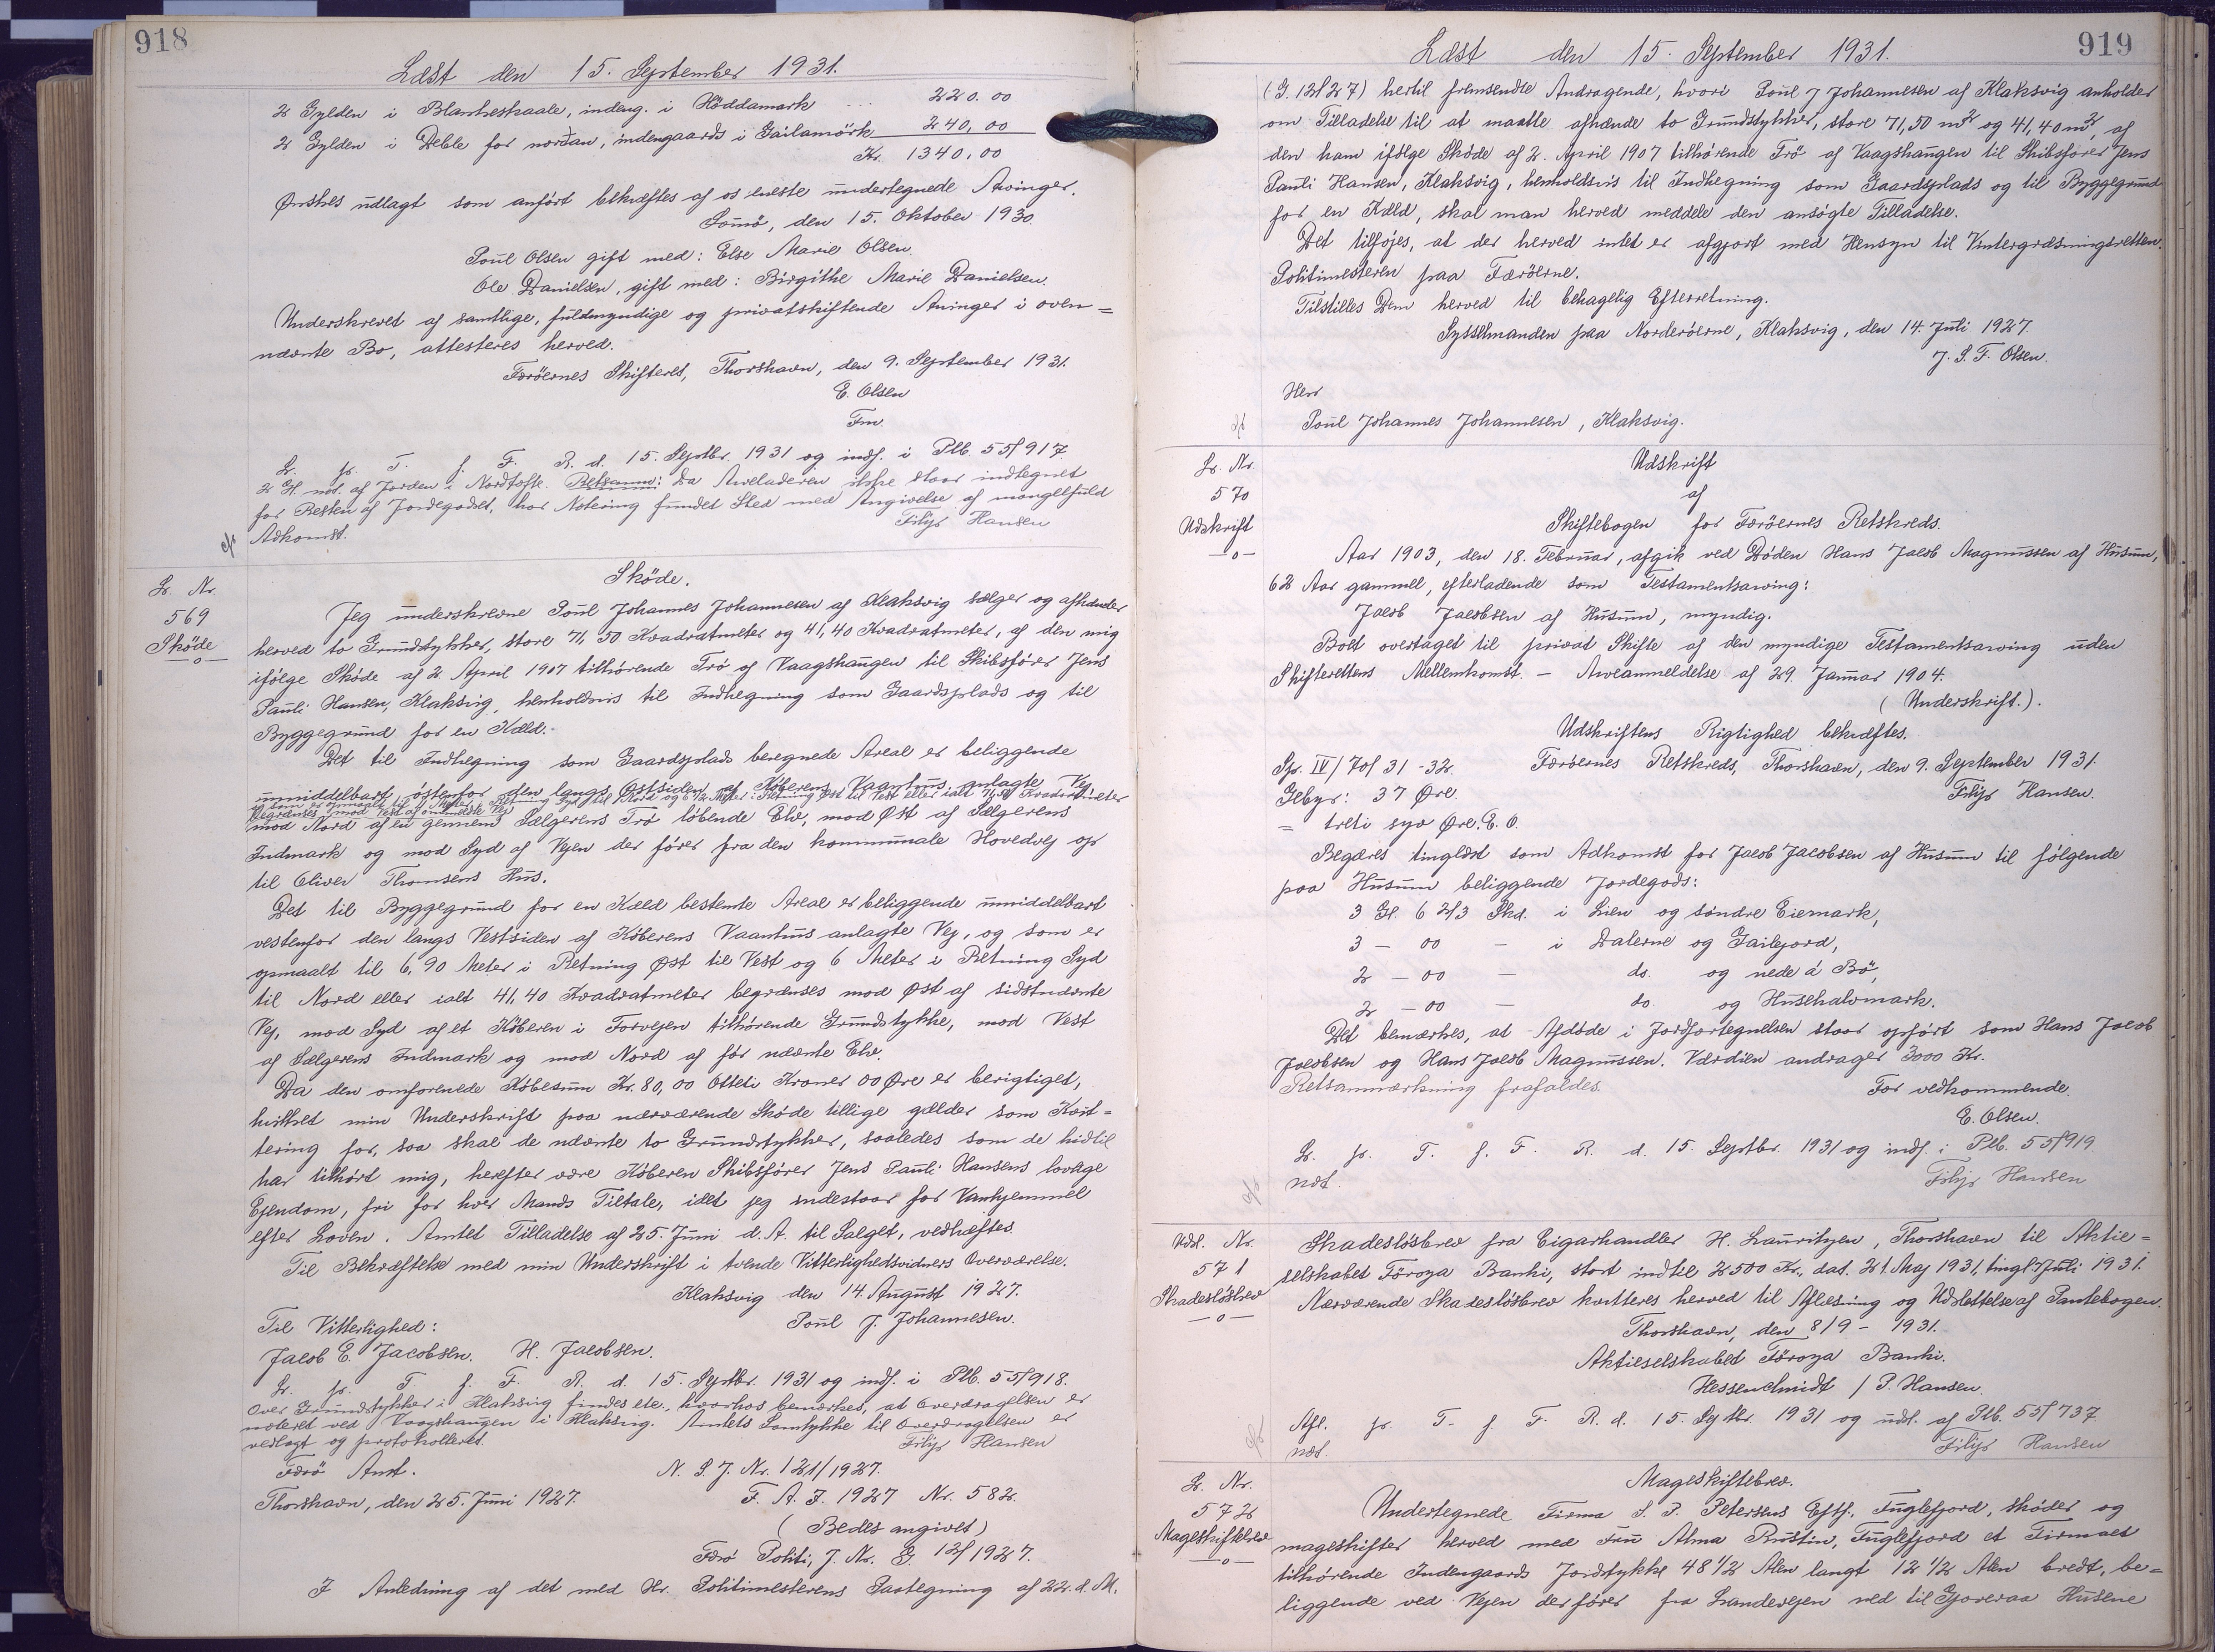 918
Læst den 15. September 1931.
2 Gylden i Blankeskaale, indeng. i Höddamark ... 220.00
2 Gylden i Deble for nordan, indengaards i Gailamörk 240,00
Kr. 1340,00
Ønskes udlagt som anfört bekræftes af os eneste undertegnede Arvinger.
Sömö, den 15. Oktober 1930.
Poul Olsen gift med: Else Marie Olsen.
Ole Danielsen, gift med: Birgithe Marie Danielsen.
Underskrevet af samtlige, fuldmyndige og privatskiftende Arvinger i oven=
nævnte Bo, attesteres herved.
Færöernes Skifteret, Thorshavn, den 9. September 1931.
E. Olsen
Fm.
L. p. T. f. F. R. d. 15. Septbr. 1931 og indf. i Ptb. 55/917.
2 Gl. ndt. af Jorden i Nordtofte. Retsanm: Da Arveladeren ikke staar indtegnet
for Resten af Jordegodset, har Notering fundet Sted med Angivelse af mangelfuld
Adkomst. Filip Hansen
L. Nr.
569
Sköde
—o—
Sköde.
Jeg underskrevne Poul Johannes Johannesen af Klaksvig sælger og afhænder
herved to Grundstykker, store 71,50 Kvadratmeter og 41,40 Kvadratmeter, af den mig
ifölge Sköde af 2. April 1907 tilhörende Trö af Vaagshaugen til Skibsförer Jens
Pauli Hansen, Klaksvig, henholdsvis til Indhegning som Gaardsplads og til
Byggegrund for en Kæld.
Det til Indhegning som Gaardsplads beregnede Areal er beliggende
umiddelbart östenfor den langs Östsiden af Köberens Vaanhus anlagte Vej
og som er opmaalt til Meter i Retning Syd til Nord og 6 1/2 Meter i Retning Öst til Vest eller ialt 71,50 Kvadratmeter
begrænses mod Vest af omtalte Vej
mod Nord af en gennem Sælgerens Trö löbende Elv, mod Øst af Sælgerens
Indmark og mod Syd af Vejen der förer fra den kommunale Hovedvej op
til Oliver Thomsens Hus.
Det til Byggegrund for en Kæld bestemte Areal er beliggende umiddelbart
vestenfor den langs Vestsiden af Köberens Vaanhus anlagte Vej, og som er
opmaalt til 6,90 Meter i Retning Øst til Vest og 6 Meter i Retning Syd
til Nord eller ialt 41,40 Kvadratmeter begrænses mod Øst af sidstnævnte
Vej, mod Syd af et Köberen i Forvejen tilhörende Grundstykke, mod Vest
af Sælgerens Indmark og mod Nord af för nævnte Elv.
Da den omforenede Købesum Kr. 80,00 Otteti Kroner 00 Øre er berigtiget,
hvilket min Underskrift paa nærværende Sköde tillige gælder som Kvit=
tering for, saa skal de nævnte to Grundstykker, saaledes som de hidtil
har tilhört mig, herefter være Köberen Skibsförer Jens Pauli Hansens lovlige
Ejendom, fri for hver Mands Tiltale, idet jeg indestaar for Vanhjemmel
efter Loven. Amtet Tilladelse af 25. Juni d. A. til Salget, vedhæftes.
Til Bekræftelse med min Underskrift i tvende Vitterlighedsvidners Overværelse.
Klaksvig den 14. August 1927.
Til Vitterlighed: Poul J. Johannesen.
Jacob E. Jacobsen. H. Jacobsen.
L. p. T. f. F. R. d. 15. Septbr. 1931 og indf. i Ptb. 55/918.
Over Grundstykker i Klaksvig findes ele., hvorhos bemærkes, at Overdragelsen er
noteret ved Vaagshaugen i Klaksvig. Amtets Samtykke til Overdragelsen er
vedlagt og protokolleret. Filip Hansen
Færö Amt. N. S. J. Nr. 121/1927.
Thorshavn, den 25. Juni 1927. F. A. J. 1927 Nr. 582.
(Bedes angivet)
Færö Politi, J. Nr. G 12/1927.
I Anledning af det med Hr. Politimesterens Paategning af 22. d. M.
919
Læst den 15. September 1931.
(G. 12/27) hertil fremsendte Andragende, hvori Poul J Johannesen af Klaksvig anholder
om Tilladelse til at maatte afhænde to Grundstykker, store 71,50 m2 og 41,40 m2, af
den ham ifölge Sköde af 2. April 1907 tilhörende Trö af Vaagshaugen til Skibsförer Jens
Pauli Hansen, Klaksvig, henholdsvis til Indhegning som Gaardsplads og til Byggegrund
for en Kæld, skal man herved meddele den ansögte Tilladelse.
Det tilföjes, at der herved intet er afgjort med Hensyn til Vintergræsningsretten.
Politimesteren paa Færöerne.
Tilstilles Dem herved til behagelig Efterretning.
Sysselmanden paa Norderöerne, Klaksvig, den 14. Juli 1927.
J. S. F. Olsen.
Herr
Poul Johannes Johannesen, Klaksvig.
L. Nr.
570
Udskrift
—o—
Udskrift
af
Skiftebogen for Færöernes Retskreds.
Aar 1903, den 18. Februar, afgik ved Döden Hans Jacob Magnussen af Húsum,
62 Aar gammel, efterladende som Testamentsarving:
Jacob Jacobsen af Húsum, myndig.
Boet overtaget til privat Skifte af den myndige Testamentsarving uden
Skifterettens Mellemkomst. — Arveanmeldelse af 29. Januar 1904.
(Underskrift.).
Udskriftens Rigtighed bekræftes.
Sp. IV/70/31-32. Færöernes Retskreds, Thorshavn, den 9. September 1931.
Gebyr: 37 Øre. Filip Hansen.
= treti syv Øre. E. O.
Begæres tinglæst som Adkomst for Jacob Jacobsen af Húsum til fölgende
paa Húsum beliggende Jordegods:
3 Gl. 6 2/3 Skd. i Lien og söndre Eiemark,
3 — 00 — i Dalerne og Gailejord,
2 — 00 — do. og nede á Bö,
2 — 00 — do. og Husehalvmark.
Det bemærkes, at Afdöde i Jordfortegnelsen staar opfört som Hans Jacob
Jacobsen og Hans Jacob Magnussen. Værdien andrager 3000 Kr.
Retsanmærkning frafaldes. For vedkommende.
E. Olsen.
L. p. T. f. F. R. d. 15. Septbr. 1931 og indf. i Ptb. 55/919
ndt. Filip Hansen
Udsl. Nr.
571
Skadeslösbrev
—o—
Skadeslösbrev fra Cigarhandler H. Lauritzen, Thorshavn til Aktie=
selskabet Föroya Banki, stort indtil 2500 Kr., dat. 21. Maj 1931, tingl. Juli 1931.
Nærværende Skadeslösbrev kvitteres herved til Aflæsning og Udslettelse af Pantebogen.
Thorshavn, den 8/9 - 1931.
Aktieselskabet Föroya Banki.
Hessenschmidt / P. Hansen.
Afl. p. T. f. F. R. d. 15. Septbr. 1931 og udsl. af Ptb. 55/737
ndt. Filip Hansen
L. Nr.
572
Mageskiftebrev
—o—
Mageskiftebrev.
Undertegnede Firma S. P. Petersens Eftf., Fuglefjord, sköder og
mageskifter herved med Fru Alma Rustin, Fuglefjord et Firmaet
tilhörende Indengaards Jordstykke 48 1/2 Alen langt 12 1/2 Alen bredt, be=
liggende ved Vejen der förer fra Landevejen ned til Gjoveraa Húsene